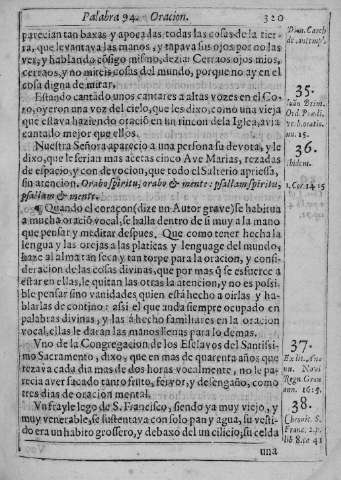 Palabra 94. Oracion. 320
parecian tan baxas y apocadas todas las cosas de la tier-
ra, que levantava las manos, y tapava sus ojos por no las
ver, y hablando cõsigo mismo, dezia: Cerraos ojos mios,
cerraos, y no mireis cosas del mundo, porque no ay en el
cosa digna de mirar.
Estando cantando unos cantares a altas vozes en el Co-
ro, oyeron una voz del cielo, que les dixo, como una vieja
que estava haziendo oraciõ en un rincon de la Iglesia, avia
cantado mejor que ellos.
Nuestra Señora aparecio a una persona su devota, y le
dixo, que le serian mas acetas cinco Ave Marias, rezadas
de espacio, y con devocion, que todo el Salterio apriessa,
sin atencion. Orabo spiritu, orabo & mente: psallam spiritu,
psallam & mente.
¶ Quando el coraçon (dize un Autor grave) se habitua
a mucha oraciõ vocal, se halla dentro de sì muy a la mano
que pensar y meditar despues. Que como tener hecha la
lengua y las orejas a las platicas y lenguage del mundo,
haze al alma tan seca y tan torpe para la oracion, y consi-
deracion de las cosas divinas, que por mas q̃ se esfuerce a
estar en ellas, le quitan las otras la atencion, y no es possi-
ble pensar sino vanidades quien està hecho a oirlas y ha-
blarlas de contino: assi el que anda siempre ocupado en
palabras divinas, y las à hecho familiares en la oracion
vocal, ellas le daràn las manos llenas para lo demas.
Uno de la Congregacion de los Esclavos del Santissi-
mo Sacramento, dixo, que en mas de quarenta años que
rezava cada dia mas de dos horas vocalmente, no le pa-
recia aver sacado tanto fruto, fervor, y desengaño, como
tres dias de oracion mental.
Un frayle lego de S. Francisco, siendo ya muy viejo, y
muy venerable, se sustentava con solo pan y agua, su vesti-
do era un habito grossero, y debaxo del un cilicio, su celda
una
35.
Ord. Prædi.
un. 15.
36.
Ibidem.
1. Cor. 14. 15
37.
38.
Chronic. S.
Franc. 2. p.
lib 8. ca 41